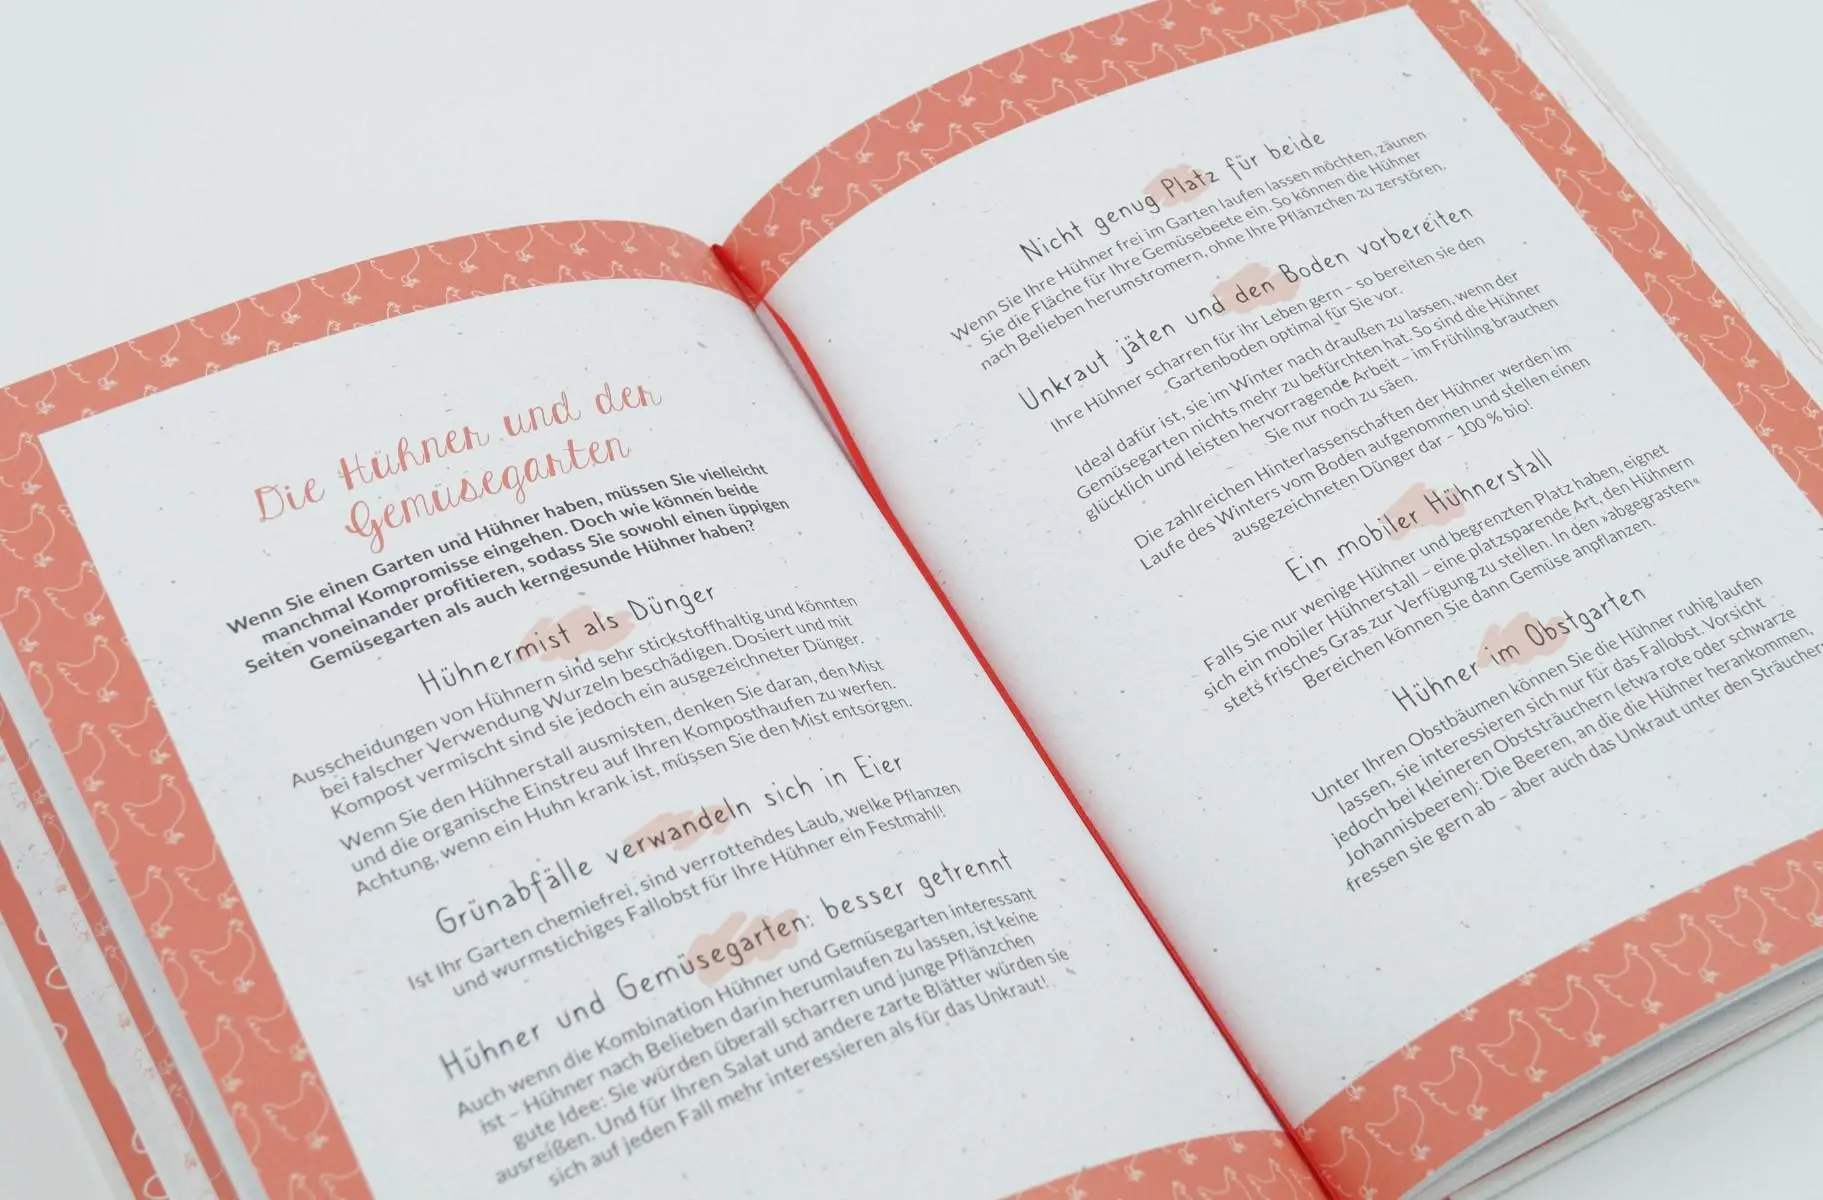 Die Hühner und der
Gemüsegarten
Wenn Sie einen Garten und Hühner haben, müssen Sie vielleicht
manchmal Kompromisse eingehen. Doch wie können beide
Seiten voneinander profitieren, sodass Sie sowohl einen üppigen
Gemüsegarten als auch kerngesunde Hühner haben?
Hühnermist als Dünger
Ausscheidungen von Hühnern sind sehr stickstoffhaltig und könnten
bei falscher Verwendung Wurzeln beschädigen. Dosiert und mit
Kompost vermischt sind sie jedoch ein ausgezeichneter Dünger.
Wenn Sie den Hühnerstall ausmisten, denken Sie daran, den Mist
und die organische Einstreu auf Ihren Komposthaufen zu werfen.
Achtung, wenn ein Huhn krank ist, müssen Sie den Mist entsorgen.
Grünabfälle verwandeln sich in Eier
Ist Ihr Garten chemiefrei, sind verrottendes Laub, welke Pflanzen
und wurmstichiges Fallobst für Ihre Hühner ein Festmahl!
Hühner und Gemüsegarten: besser getrennt
Auch wenn die Kombination Hühner und Gemüsegarten interessant
ist – Hühner nach Belieben darin herumlaufen zu lassen, ist keine
gute Idee: Sie würden überall scharren und junge Pflänzchen
ausreißen. Und für Ihren Salat und andere zarte Blätter würden sie
sich auf jeden Fall mehr interessieren als für das Unkraut!
Nicht genug Platz für beide
Wenn Sie Ihre Hühner frei im Garten laufen lassen möchten, zäunen
Sie die Fläche für Ihre Gemüsebeete ein. So können die Hühner
nach Belieben herumstromern, ohne Ihre Pflänzchen zu zerstören.
Unkraut jäten und den Boden vorbereiten
Ihre Hühner scharren für ihr Leben gern – so bereiten sie den
Gartenboden optimal für Sie vor.
Ideal dafür ist, sie im Winter nach draußen zu lassen, wenn der
Gemüsegarten nichts mehr zu befürchten hat. So sind die Hühner
glücklich und leisten hervorragende Arbeit – im Frühling brauchen
Sie nur noch zu säen.
Die zahlreichen Hinterlassenschaften der Hühner werden im
Laufe des Winters vom Boden aufgenommen und stellen einen
ausgezeichneten Dünger dar – 100 % bio!
Ein mobiler Hühnerstall
Falls Sie nur wenige Hühner und begrenzten Platz haben, eignet
sich ein mobiler Hühnerstall – eine platzsparende Art, den Hühnern
stets frisches Gras zur Verfügung zu stellen. In den »abgegrasten«
Bereichen können Sie dann Gemüse anpflanzen.
Hühner im Obstgarten
Unter Ihren Obstbäumen können Sie die Hühner ruhig laufen
lassen, sie interessieren sich nur für das Fallobst. Vorsicht
jedoch bei kleineren Obststräuchern (etwa rote oder schwarze
Johannisbeeren): Die Beeren, an die die Hühner herankommen,
fressen sie gern ab – aber auch das Unkraut unter den Sträuchern